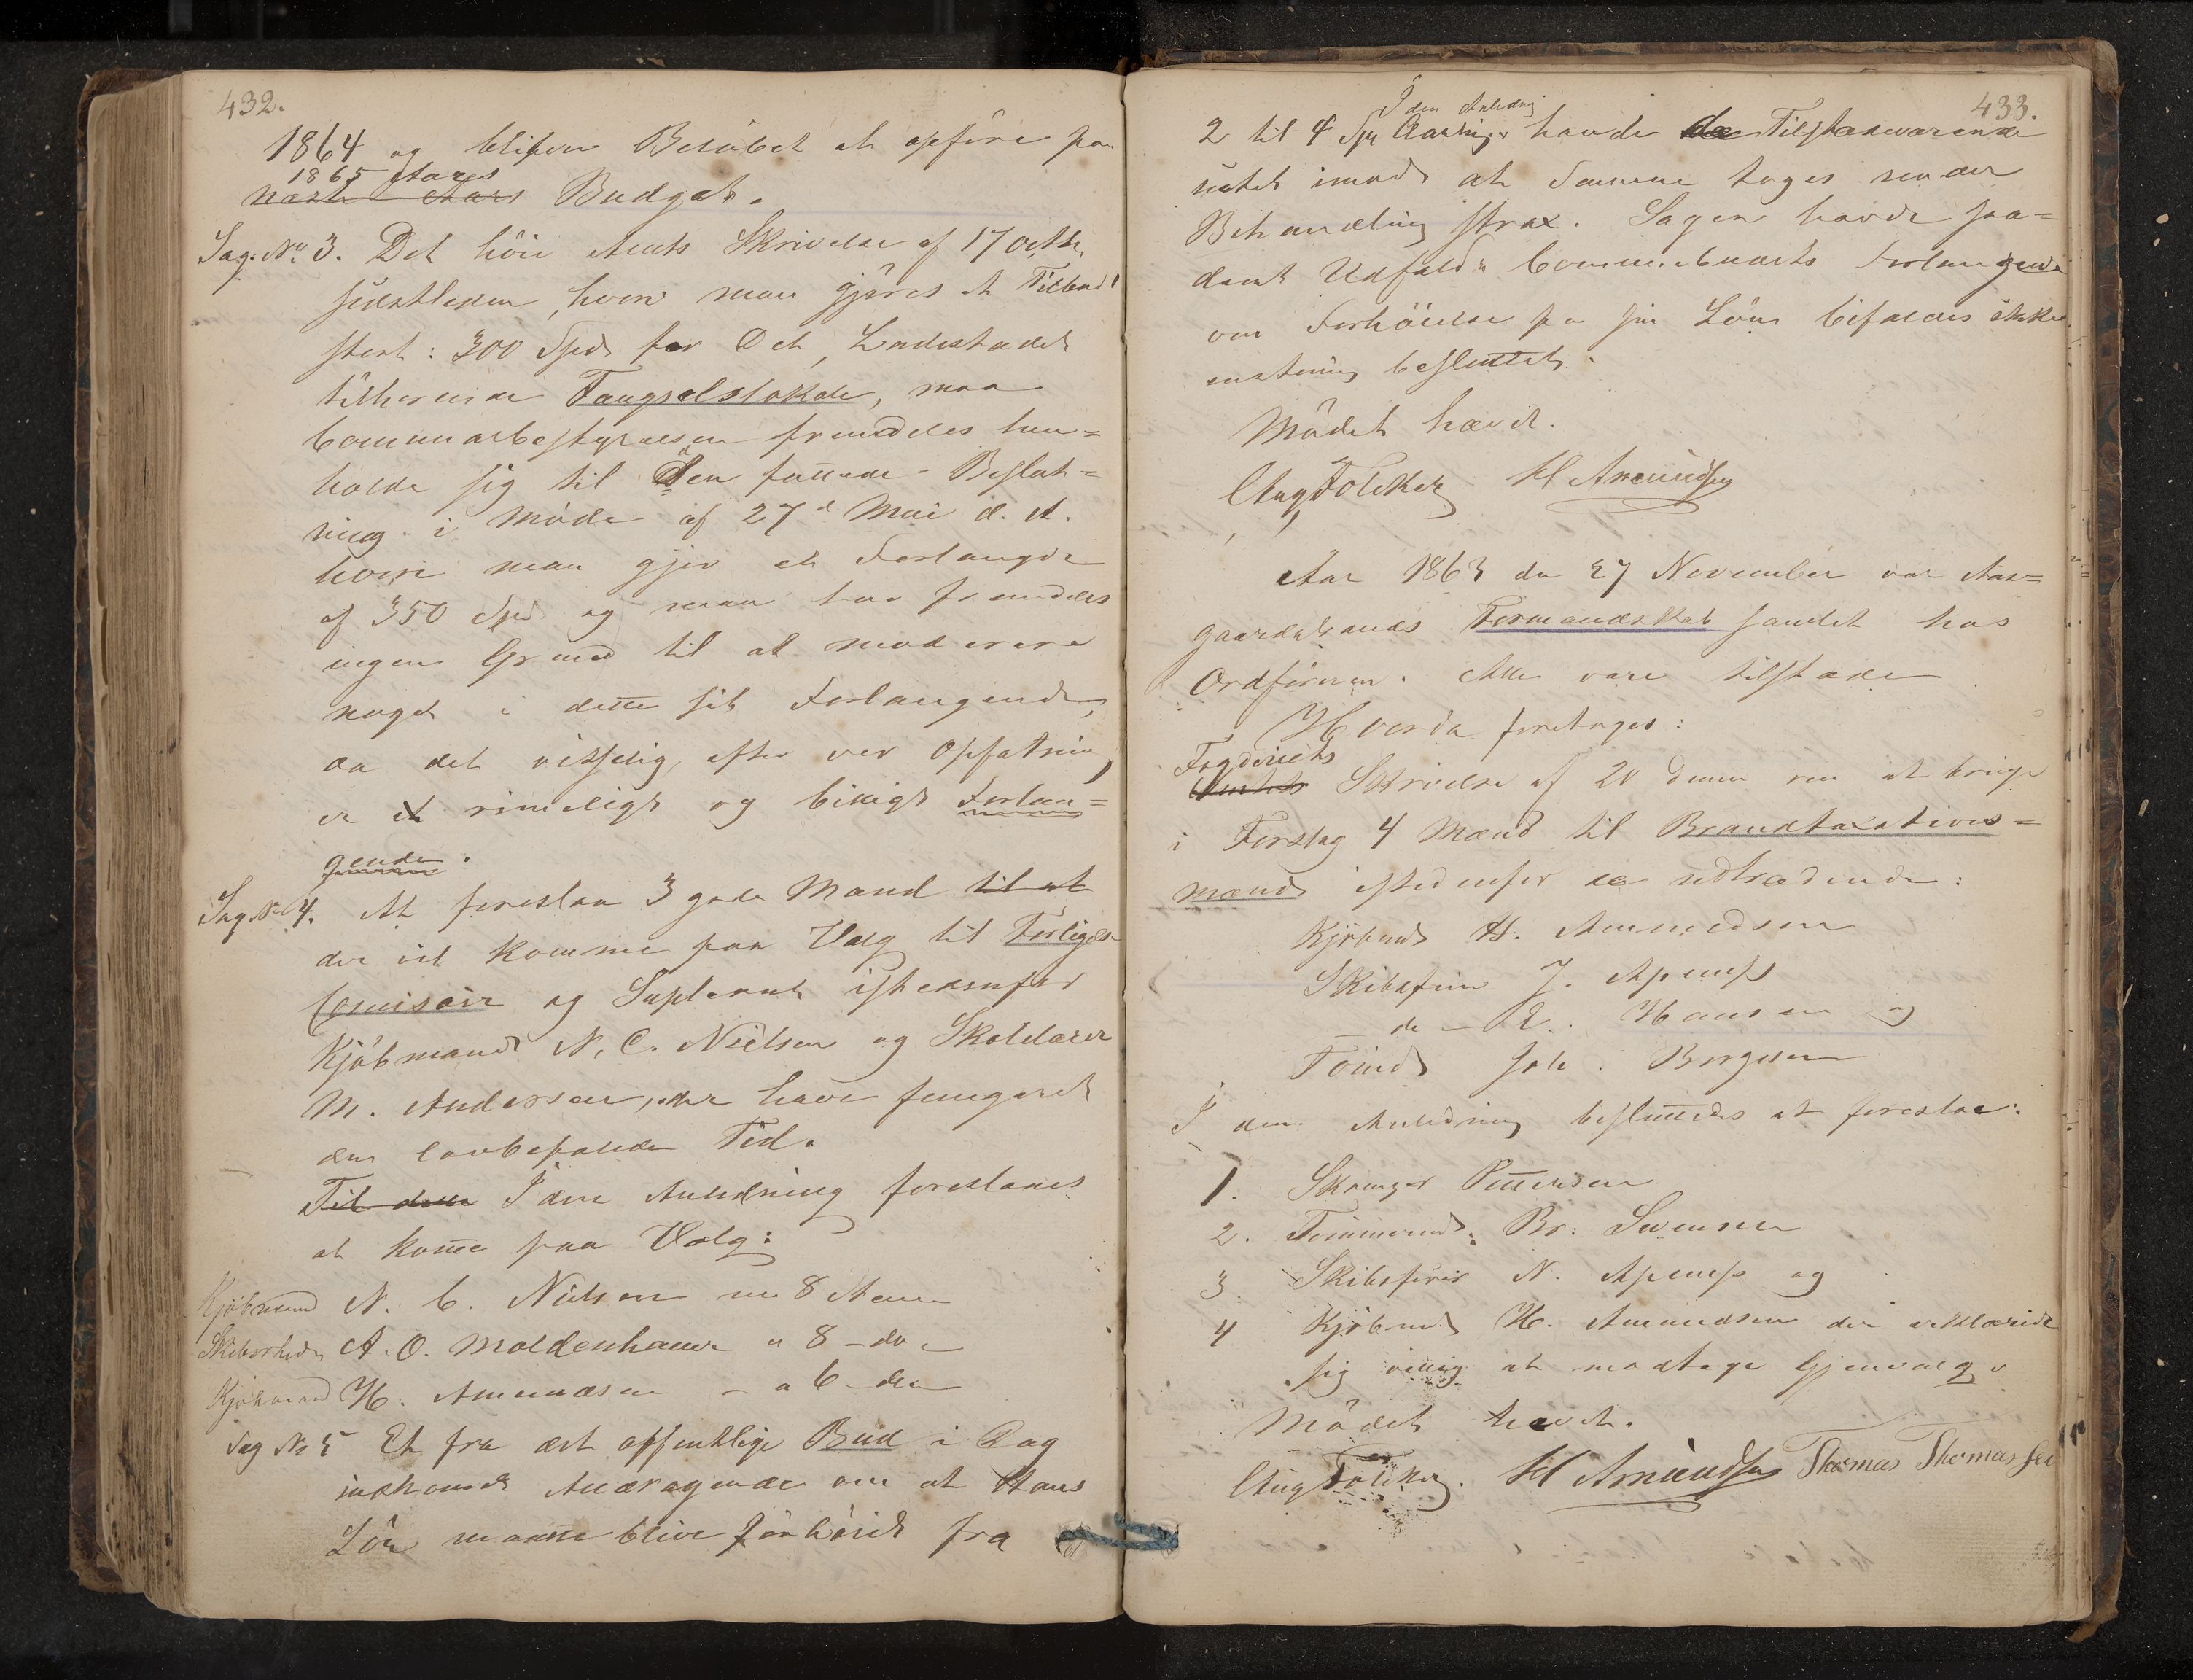 432.
1864 og bliver Beløbet at opføre paa
1865 Aars
næste Aars Budget.
Sag: No 3. Det høie Amts Skrivelse af 17 octbr
sidstleden, hvori man gjøres et Tilbud
stort: 300 Spd for Det, Ladestadet
tilhørende Fængselslokale, maa
Communebestyrelsen fremdeles hen=
holde sig til den fattede Beslut=
ning i Møde af 27d Mai d. A.
hvori man gjør et Forlangde
af 350 Spd og man har fremdeles
ingen Grund til at moderere
noget i dette sit Forlangende,
da det visselig efter vor Opfatning
er et rimeligt og billigt Forlan=
gende.
Sag No 4. At foreslaa 3 gode Mænd til at
der vil komme paa Valg til Forligels
Comisair og Suplerant istedenfor
Kjøbmand N. C. Nielsen og Skolelærer
M. Andersen, der have fungeret
den lovbefalede Tid.
Til dette I den Anledning foreslaaes
at komme paa Valg:
Kjøbmand N. C. Nielsen 8 Aar
Skibsrheder A. O. Moldenhauer 8 - do
Kjøbmand H. Amundsen 6 do
Sag No 5 Et fra det offentlige Bud i Dag
indkomet Andragende om at Hans
Løn maatte blive forhøiet fra
433.
I den Anledning
2 til 4 Spd Aarligen havde de Tilstædeværende
intet imod at Samme toges under
Behandling strax. Sagen havde saa=
dant Udfald: Communebudets Forlangende
om Forhøielse paa sin Løn bifaldes ikke
enstemmig besluttet.
Mødet hævet.
Aug Fölcker H Amundsen
Aar 1863 den 27 November var Aas=
gaardstrands Formandskab samlet hos
Ordføreren. Alle vare tilstæde
Hvorda foretoges:
Fogderiets
Amtets Skrivelse af 20 dennes om at bringe
i Forslag 4 Mænd til Brandtaxations=
mænd istedenfor de udtrædende:
Kjøbmd H. Amundsen
Skibsfører J. Apenæs
- do - E. Hansen og
Tømd Joh. Borgesen
I den Anledning besluttedes at foreslaa:
1. Pettersen
2. Tømmermd: Br: Svensen
3 Skibsfører N. Apenæs og
4 Kjøbmd H. Amundsen der erklærede
sig villig at modtage Gjenvalg.
Mødet hævet.
Aug Fölcker. H Amundsen Thomas Thomassen